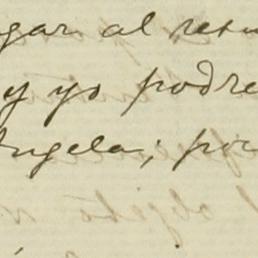 gar al resu
y yo podre
Angela; por